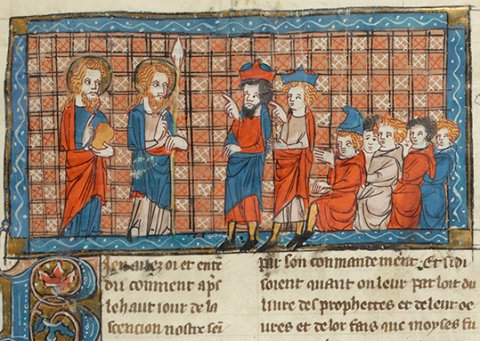 Bien avez oi et ente
du coment aps
le haut jour de la
scention nostre sei
par son commandement. Et si di
soient quant on leur parloit du
liure des prophettes et de leur oe
ures et de lor fais que moyses fu